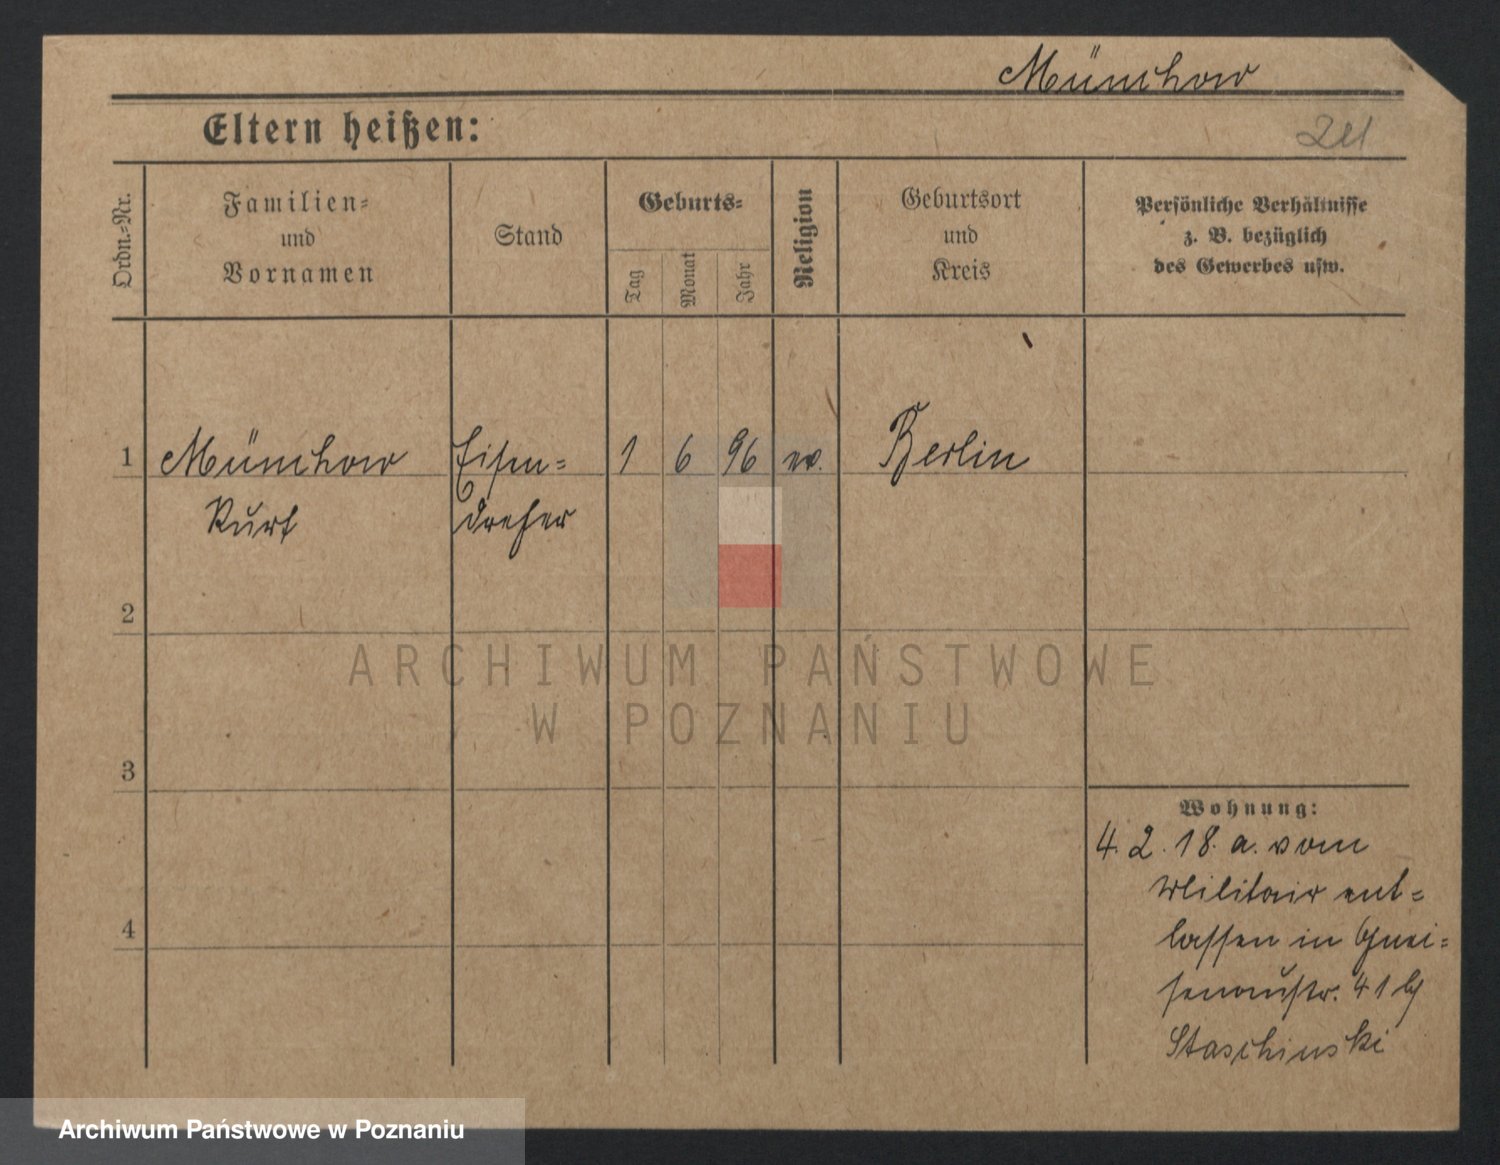 Münchow
Eltern heißen:
241
Ordn.-Nr.
Familien-
und
Vornamen
Stand
Geburts-
Tag
Monat
Jahr
Religion
Geburtsort
und
Kreis
Persönliche Verhältnisse
z. B. bezüglich
des Gewerbes usw.
1 Münchow Eisen= 1 6 96 ev. Berlin
Kurt dreher
2
ARCHIWUM PAŃSTWOWE
W POZNANIU
3
Wohnung:
4. 2. 18. a. vom
Militair ent=
4
lassen in Gnei=
senaustr. 41 b/
Staschinski
Archiwum Państwowe w Poznaniu